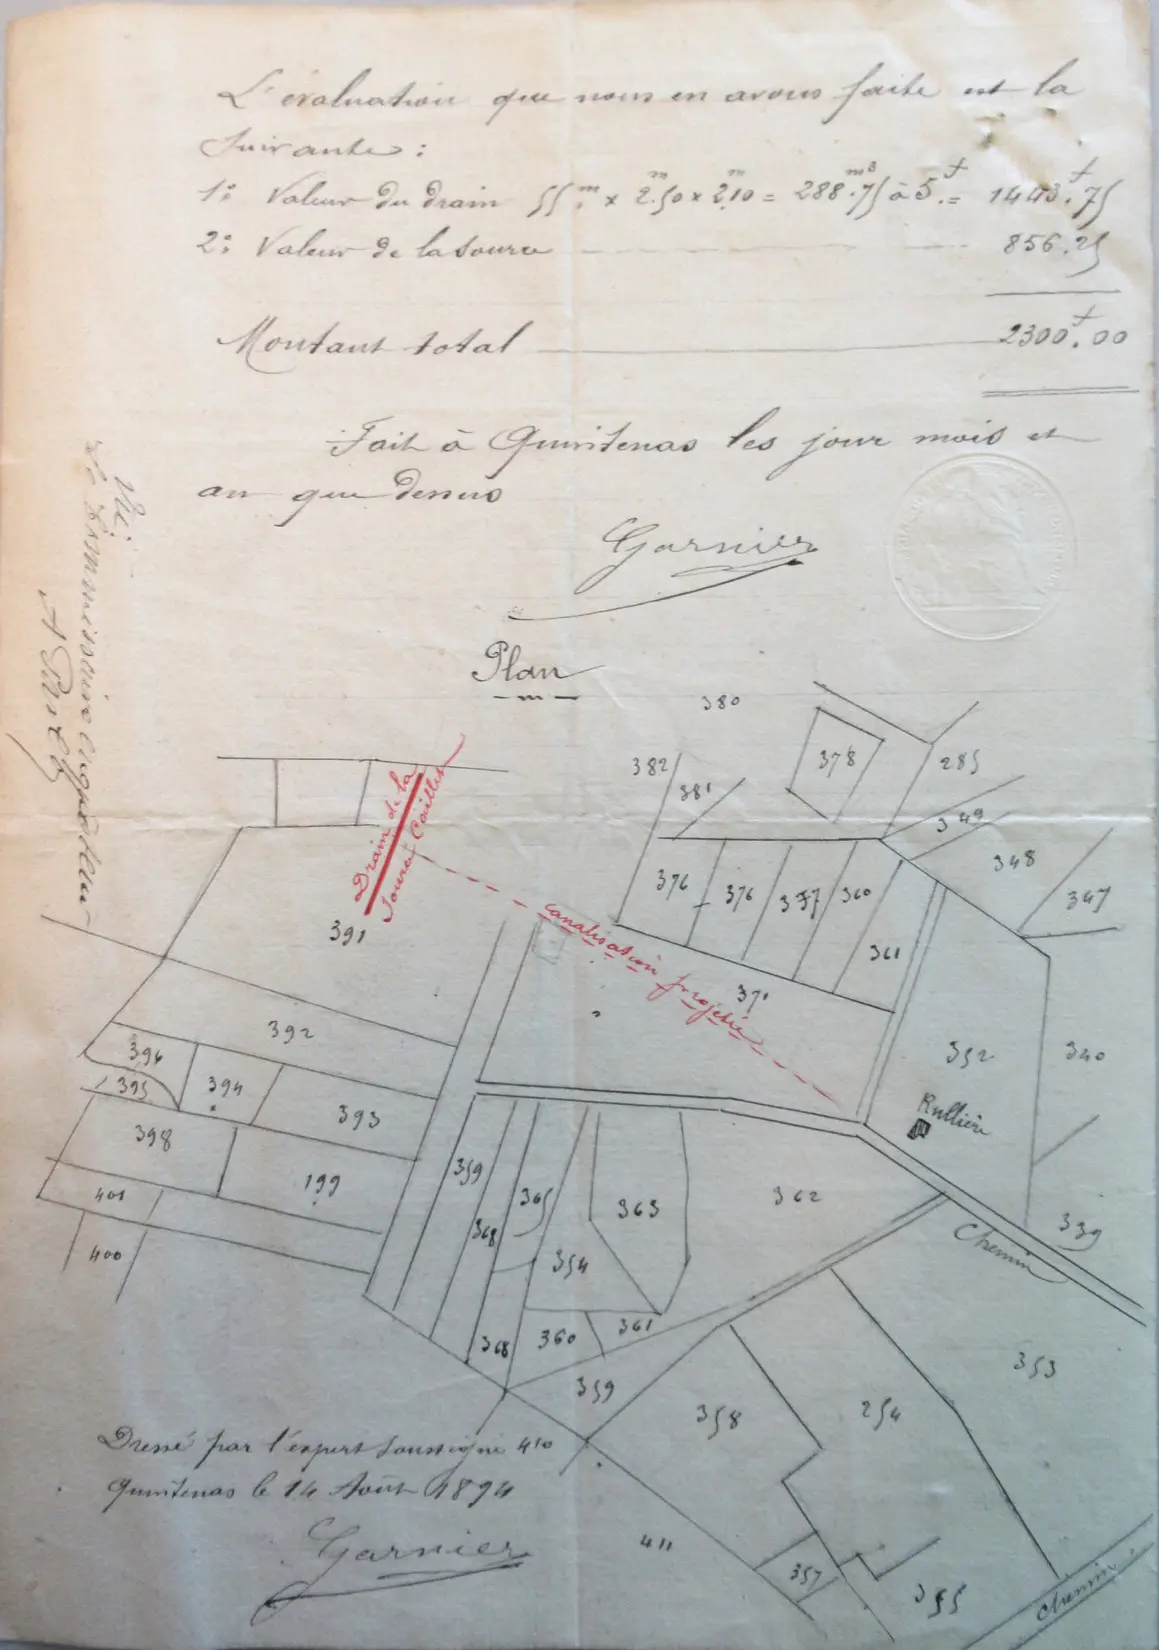 L'évaluation que nous en avons faite est la
suivante :
1° Valeur du drain 55m. x 2m.50 x 2m.10 = 288.m3 75 à 5.f = 1443.f 75
2° Valeur de la source 856.25
Montant total 2300.f 00
Fait à Quintenas les jour mois et
an que dessus
Garnier
Vu :
Le Commissaire enquêteur
Plan
380
378
285
382
381
349
348
347
Drain de la
source Cailles
391
376
376
377
360
361
canalisation projetée
371
392
396
395
394
393
398
199
401
400
352
340
Rullière
339
Chemin
359
368
365
354
363
362
368
360
361
359
353
358
254
Dressé par l'expert soussigné
410
Quintenas le 14 Août 1894
Garnier
411
357
355
Chemin